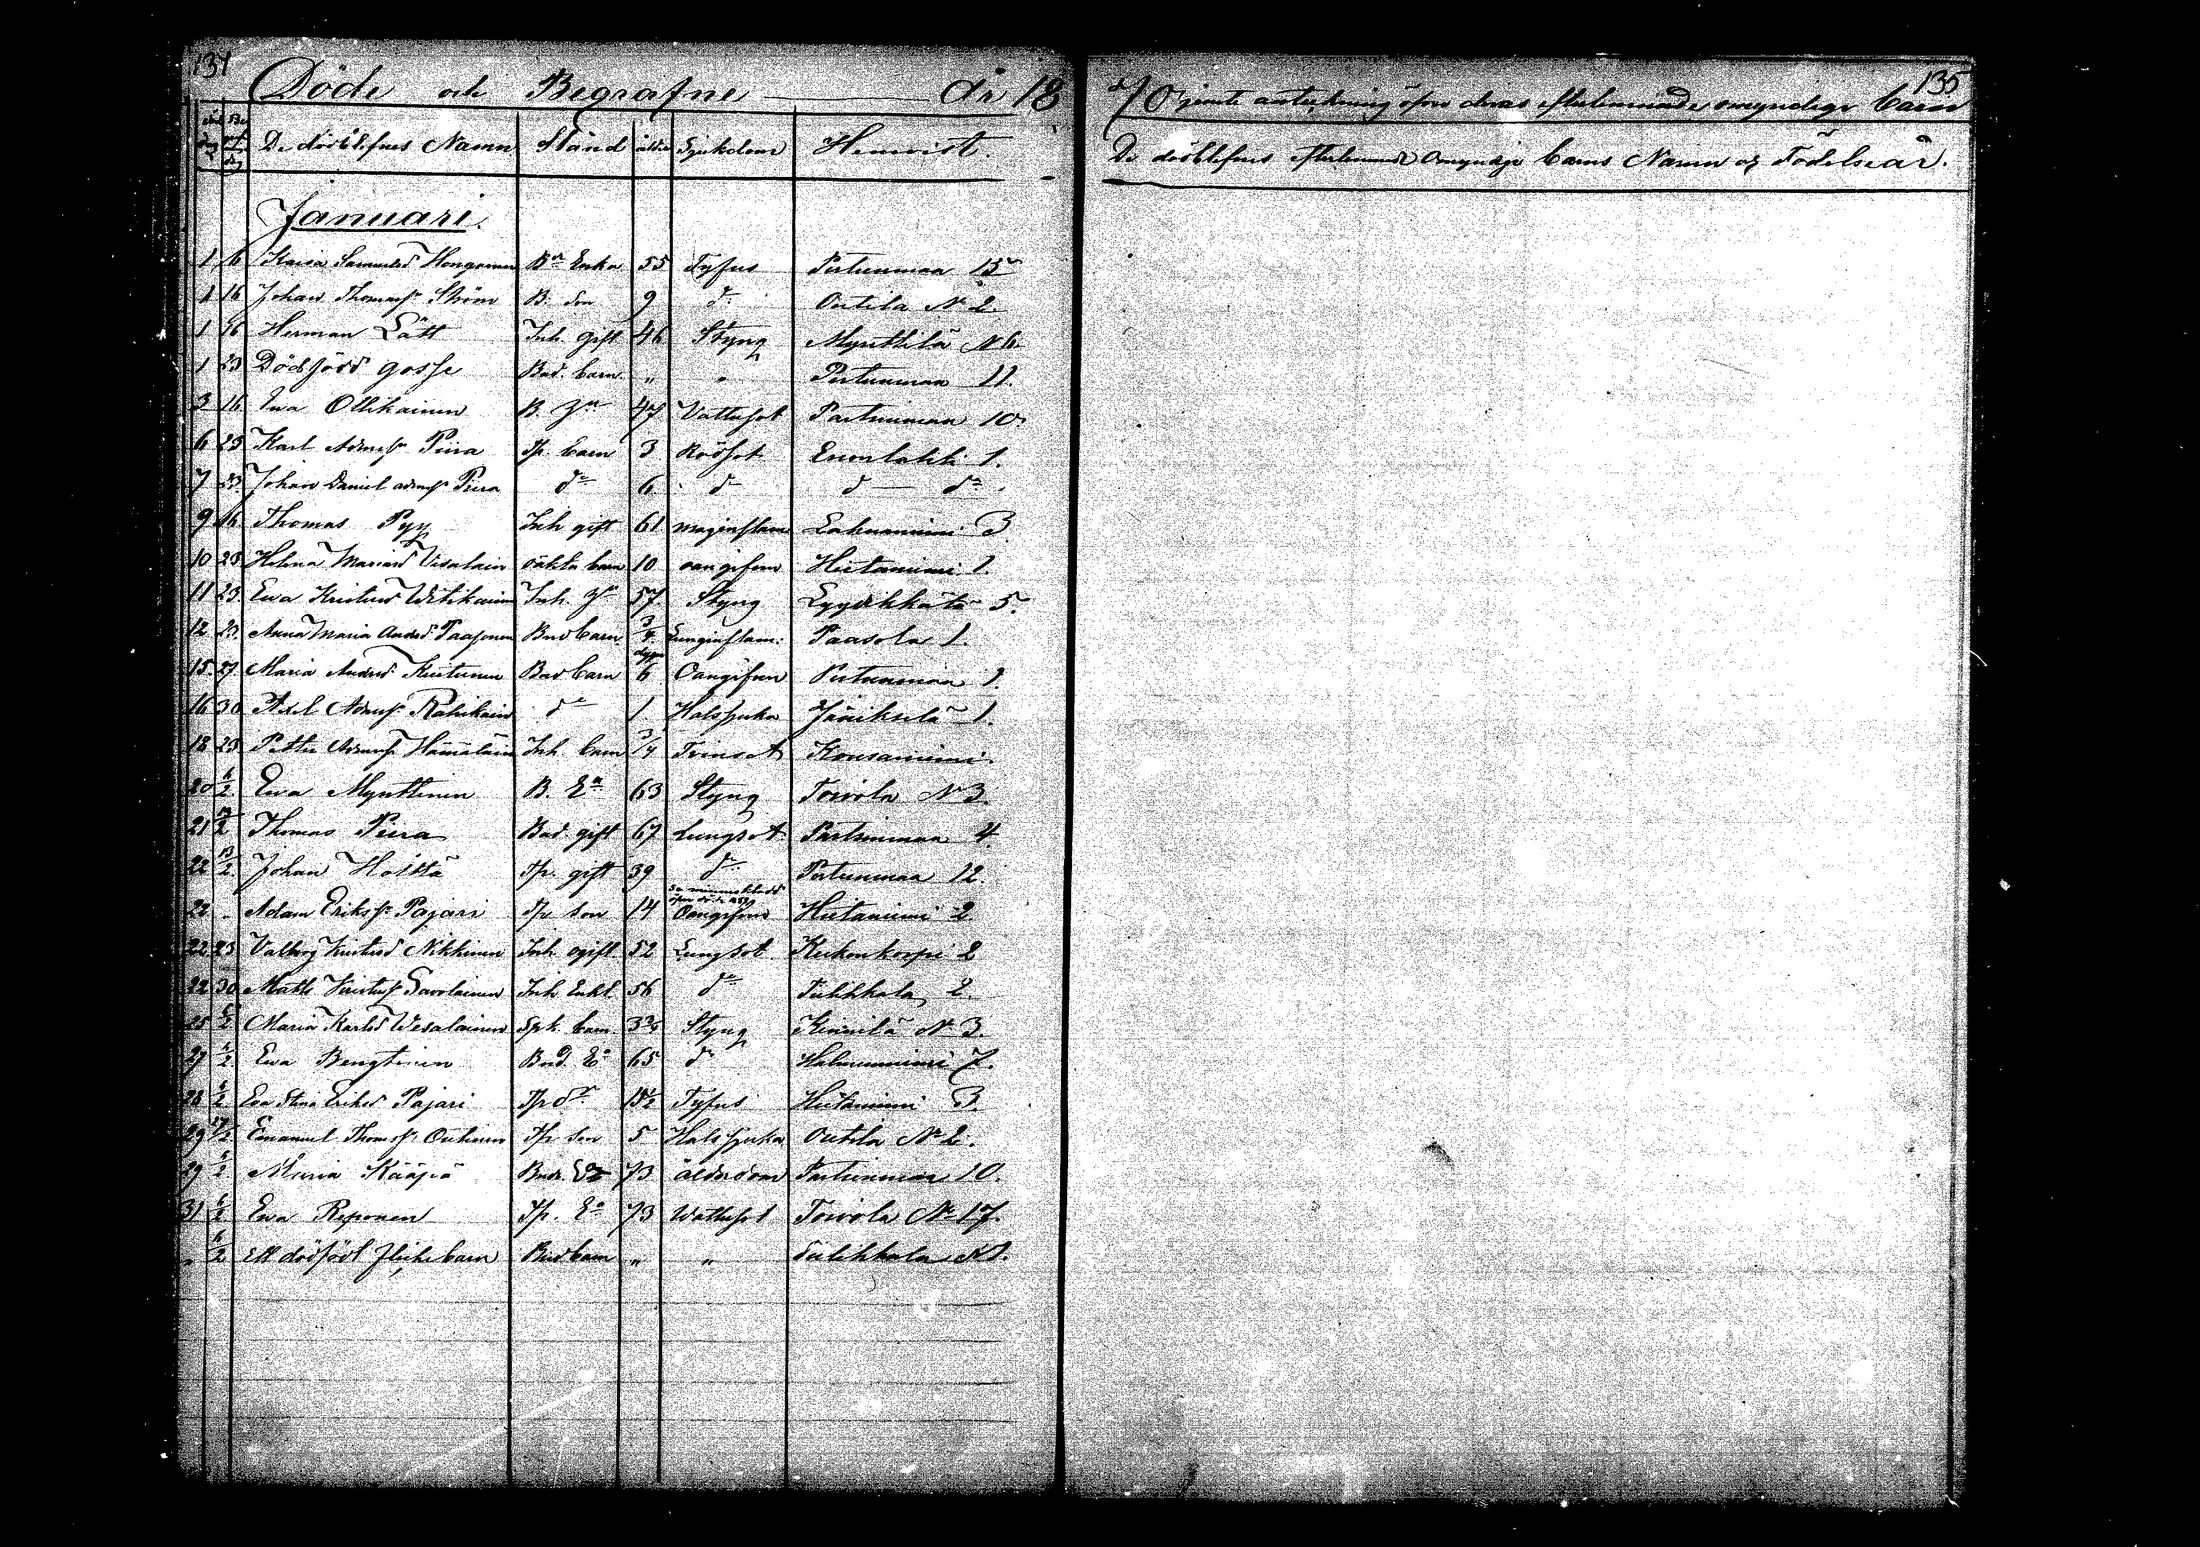 134
Döde och Begrafne År 18
död dag Begr. dag De dödblefnes Namn Stånd ålder Sjukdom Hemvist.
Januari.
1 16 Kaisa Samuelsd Hongonen Bd Enka 55 Tyfus Pertunmaa 15
1 16 Johan Thomass. Ström B. Son 9 do Outila No 2.
1 16 Herman Lätt Inh. gift 46 Styng Mynttilä N 6.
1 23 Dödfödd gosse Bad. barn " " Pertunmaa 11.
3 16 Ewa Ollikainen B. 47 Vattusot Pertunmaa 10.
6 23 Karl Adamss. Piira Tp. barn 3 Rödsot Enonlahti 1.
7 23 Johan Daniel adamss. Piira do 6 do do do
9 16 Thomas Pyy Inh gift 61 maginflam Lahnaniemi 3
10 23 Helena Mariasd Vesalain oäkta barn 10 oangifven Hietaniemi 1.
11 23. Ewa Kristersd Witikainen Inh. 57 Styng Lyydikkälä 5.
12 23 Anna Maria Andersd Paasonen Bond barn 3/4 Lunginflam: Paasola 1.
15 27 Maria Andersd Kiutunen Bond barn dygn 6 Oangifven Pertunmaa 1.
16 30 Axel Adamss. Rahikain do 1. Halssjuka Jäniksilä 1.
18 23 Petter Adamss. Hämäläin Inh. barn 3/4 Tvinsot Konsaniemi.
20 6/2 Ewa Mynttinen B. Ea 63 Styng Toivola N 3.
21 13/2 Thomas Piira Bad. gift 67 Lungsot Pertunmaa 4.
22 13/2 Johan Hölttä Tp. gift 39 do Pertunmaa 12.
22 " Adam Erikss. Pajari Tp son 14 Oangifven Hietaniemi 2
22 23 Valborg Kristersd Nikkinen Inh. ogift 52 Lungsot Kukonkorpi 2
22 30 Matts Kristers. Savolainen Inh Enkl 56 do Tuhkkala 2.
25 6/2 Maria Karlsd Wesalainen Spk. barn 3 Styng Kinnilä No 3.
27 6/2 Ewa Bengtinen Bad. Ea 65 do Halmeniemi 7.
28 6/2 Eva Stina Eriksd Pajari Tp dr 15 1/2 Tyfus Hietaniemi 3.
29 27/2 Emanuel Thomss. Outinen Tp son 5 Halssjuka Outila No 2.
29 6/2 Maria Kääpä Bad. Ea 73 ålderdom Pertunmaa 10.
31 6/2 Ewa Reponen Tp. Ea 73 Wattusot Toivola No 17.
" 6/2 Ett dödfödt flicke barn Bad barn " " Tuhkkala N 1.
135
jemte anteckning öfver deras efterlemnade omyndige barn
De dödblefnes efterlemnade Omyndige barns Namn och Födelseår.